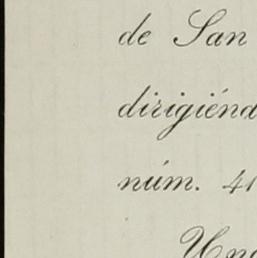 de San
dirigiénd
núm. 41
Una